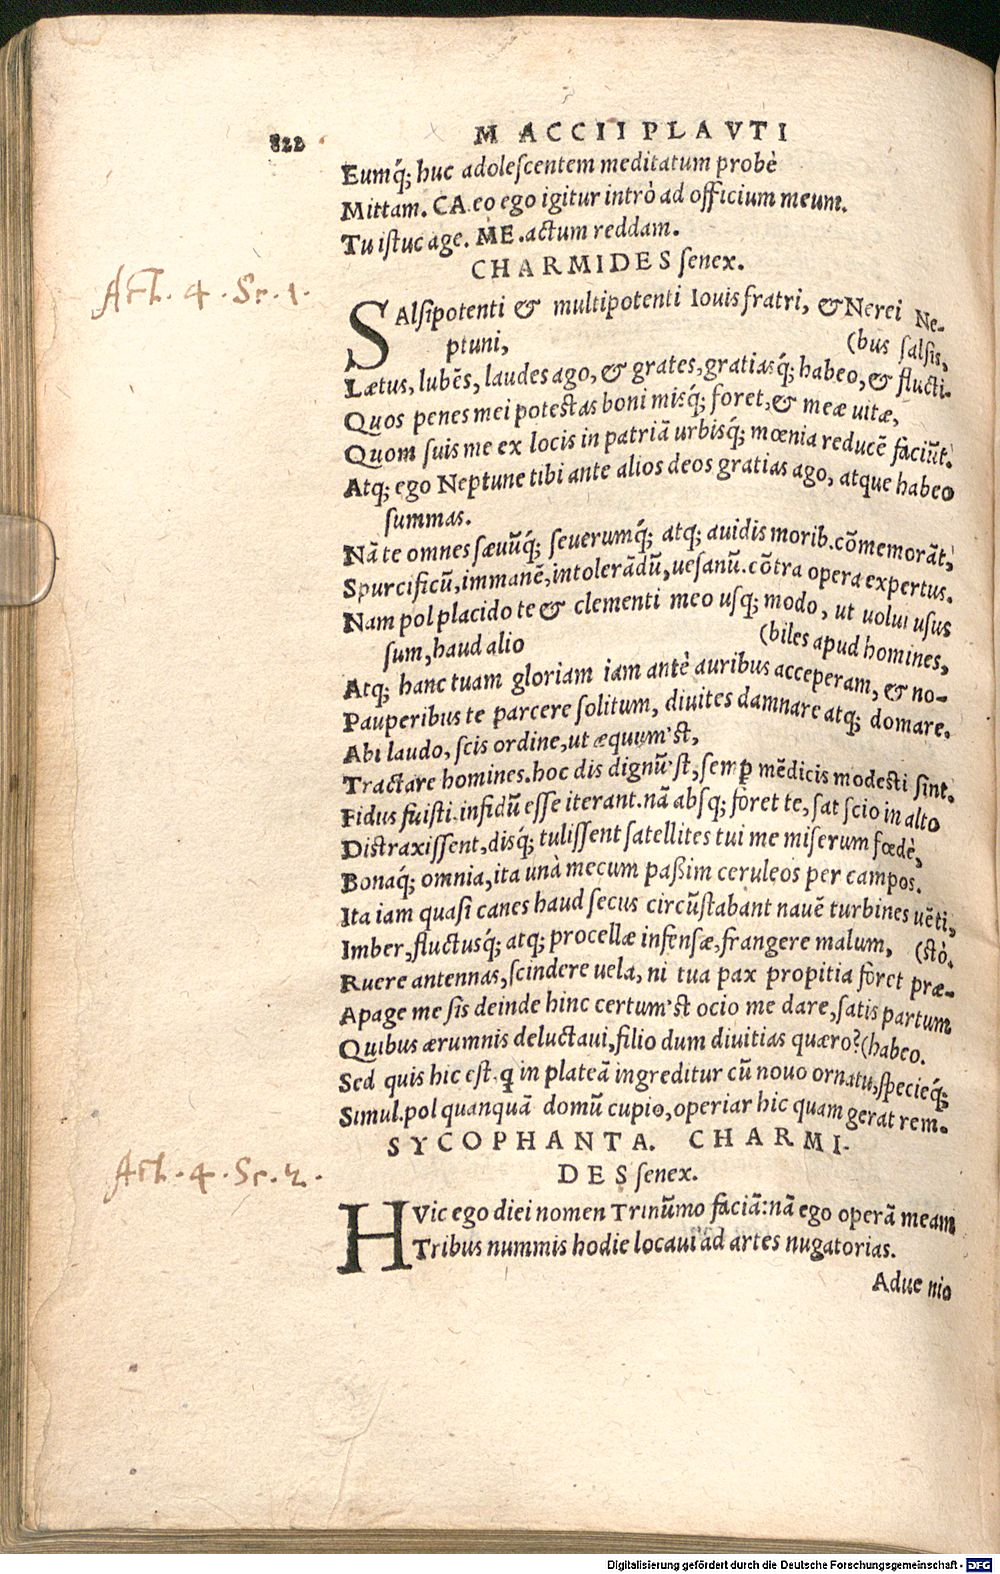 822 M ACCII PLAVTI
Eumq́; huc adoleſcentem meditatum probè
Mittam. CA. eo ego igitur intrò ad officium meum.
Tu iſtuc age. ME. actum reddam.
CHARMIDES ſenex.
Act. 4. Sc. 1.
SAlſipotenti & multipotenti Iouis fratri, & Nerei Ne-
ptuni, (bus ſalſis,
Lætus, lubẽs, laudes ago, & grates, gratiasq́; habeo, & flucti-
Quos penes mei poteſtas boni miſq́; foret, & meæ uitæ,
Quom ſuis me ex locis in patriã urbisq́; mœnia reducẽ faciũt.
Atq; ego Neptune tibi ante alios deos gratias ago, atque habeo
ſummas.
Nã te omnes ſæuũq́; ſeuerumq́; atq; auidis morib. cõmemorãt,
Spurcificũ, immanẽ, intolerãdũ, ueſanũ. cõtra opera expertus.
Nam pol placido te & clementi meo uſq; modo, ut uolui uſus
ſum, haud alio (biles apud homines,
Atq; hanc tuam gloriam iam antè auribus acceperam, & no-
Pauperibus te parcere ſolitum, diuites damnare atq; domare.
Abi laudo, ſcis ordine, ut æquum'ſt,
Tractare homines. hoc dis dignũ'ſt, ſemꝑ mẽdicis modeſti ſint.
Fidus fuiſti. infidũ eſſe iterant. nã abſq; foret te, ſat ſcio in alto
Diſtraxiſſent, disq́; tuliſſent ſatellites tui me miſerum fœdè,
Bonaq́; omnia, ita unà mecum paßim ceruleos per campos.
Ita iam quaſi canes haud ſecus circũſtabant nauẽ turbines uẽti,
Imber, fluctusq́; atq; procellæ infenſæ, frangere malum, (ſtò.
Ruere antennas, ſcindere uela, ni tua pax propitia foret præ-
Apage me ſis deinde hinc certum'ſt ocio me dare, ſatis partum
Quibus ærumnis deluctaui, filio dum diuitias quæro? (habeo.
Sed quis hic eſt, q in plateã ingreditur cũ nouo ornatu, ſpecieq́;
Simul. pol quanquã domũ cupio, operiar hic quam gerat rem.
SYCOPHANTA. CHARMI-
DES ſenex.
Act. 4. Sc. 2.
HVic ego diei nomen Trinũmo faciã: nã ego operã meam
Tribus nummis hodie locaui ad artes nugatorias.
Adue nio
Digitalisierung gefördert durch die Deutsche Forschungsgemeinschaft - DFG